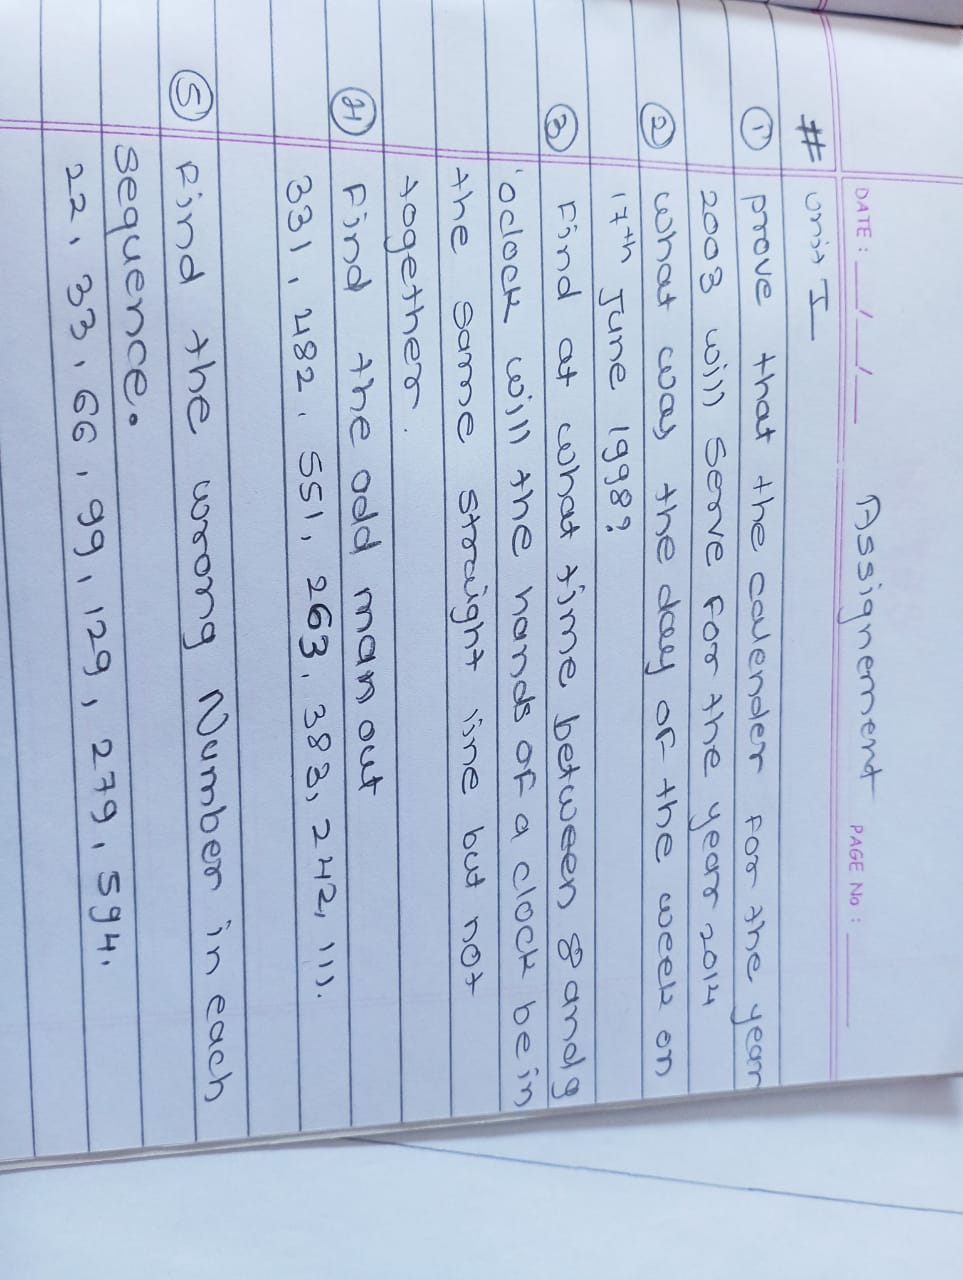 DATE : __/__/__ Assignement PAGE No : ______
# unit I
① prove that the calender for the year
2003 will serve for the year 2014
② what was the day of the week on
17th June 1998?
③ Find at what time between 8 and 9
'oclock will the hands of a clock be in
the same straight line but not
together.
④ Find the odd man out
331, 482, 551, 263, 383, 242, 111.
⑤ Find the wrong Number in each
sequence.
22, 33, 66, 99, 129, 279, 594.